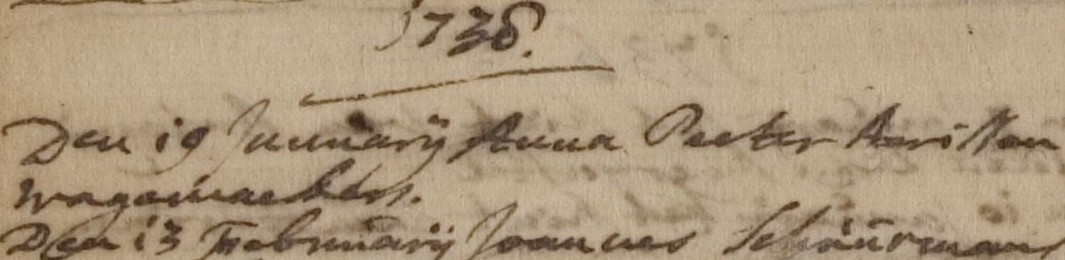 1738.
Den 19 Januarij Anna Peeter Aerissen
wagemackers.
Den 13 Februarij Joannes Schuurmans